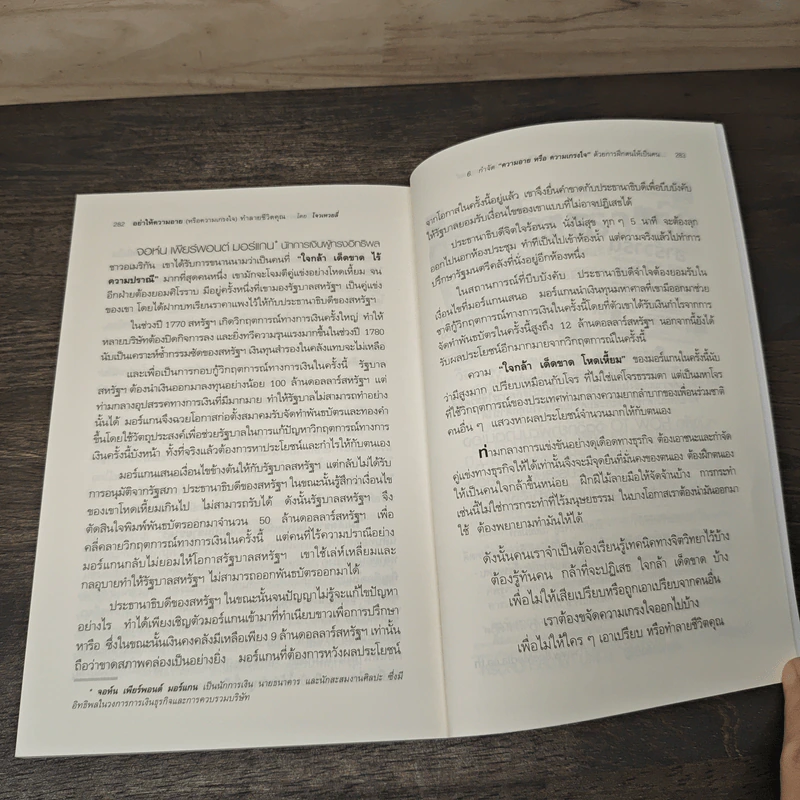 282 อย่าให้ความอาย (หรือความเกรงใจ) ทำลายชีวิตคุณ โดย โจวเหวยลี่
จอห์น เพียร์พอนต์ มอร์แกน* นักการเงินผู้ทรงอิทธิพล
ชาวอเมริกัน เขาได้รับการขนานนามว่าเป็นคนที่ "ใจกล้า เด็ดขาด ไร้
ความปรานี" มากที่สุดคนหนึ่ง เขามักจะโจมตีคู่แข่งอย่างโหดเหี้ยม จน
อีกฝ่ายต้องยอมศิโรราบ มีอยู่ครั้งหนึ่งที่เขามองรัฐบาลสหรัฐฯ เป็นคู่แข่ง
ของเขา โดยได้ฝากบทเรียนราคาแพงไว้ให้กับประธานาธิบดีของสหรัฐฯ
ในช่วงปี 1770 สหรัฐฯ เกิดวิกฤตการณ์ทางการเงินครั้งใหญ่ ทำให้
หลายบริษัทต้องปิดกิจการลง และยิ่งทวีความรุนแรงมากขึ้นในช่วงปี 1780
นับเป็นเคราะห์ซ้ำกรรมซัดของสหรัฐฯ เงินทุนสำรองในคลังแทบจะไม่เหลือ
และเพื่อเป็นการกอบกู้วิกฤตการณ์ทางการเงินในครั้งนี้ รัฐบาล
สหรัฐฯ ต้องนำเงินออกมาลงทุนอย่างน้อย 100 ล้านดอลลาร์สหรัฐฯ แต่
ท่ามกลางอุปสรรคทางการเงินที่มีมากมาย ทำให้รัฐบาลไม่สามารถทำอย่าง
นั้นได้ มอร์แกนจึงฉวยโอกาสก่อตั้งสมาคมรับจัดทำพันธบัตรและทองคำ
ขึ้นโดยใช้วัตถุประสงค์เพื่อช่วยรัฐบาลในการแก้ปัญหาวิกฤตการณ์ทางการ
เงินครั้งนี้บังหน้า ทั้งที่จริงแล้วต้องการหาประโยชน์และกำไรให้กับตนเอง
มอร์แกนเสนอเงื่อนไขข้างต้นให้กับรัฐบาลสหรัฐฯ แต่กลับไม่ได้รับ
การอนุมัติจากรัฐสภา ประธานาธิบดีของสหรัฐฯ ในขณะนั้นรู้สึกว่าเงื่อนไข
ของเขาโหดเหี้ยมเกินไป ไม่สามารถรับได้ ดังนั้นรัฐบาลสหรัฐฯ จึง
ตัดสินใจพิมพ์พันธบัตรออกมาจำนวน 50 ล้านดอลลาร์สหรัฐฯ เพื่อ
คลี่คลายวิกฤตการณ์ทางการเงินในครั้งนี้ แต่คนที่ไร้ความปรานีอย่าง
มอร์แกนกลับไม่ยอมให้โอกาสรัฐบาลสหรัฐฯ เขาใช้เล่ห์เหลี่ยมและ
กลอุบายทำให้รัฐบาลสหรัฐฯ ไม่สามารถออกพันธบัตรออกมาได้
ประธานาธิบดีของสหรัฐฯ ในขณะนั้นจนปัญญาไม่รู้จะแก้ไขปัญหา
อย่างไร ทำได้เพียงเชิญตัวมอร์แกนเข้ามาที่ทำเนียบขาวเพื่อการปรึกษา
หารือ ซึ่งในขณะนั้นเงินคงคลังมีเหลือเพียง 9 ล้านดอลลาร์สหรัฐฯ เท่านั้น
ถือว่าขาดสภาพคล่องเป็นอย่างยิ่ง มอร์แกนที่ต้องการหวังผลประโยชน์
* จอห์น เพียร์พอนต์ มอร์แกน เป็นนักการเงิน นายธนาคาร และนักสะสมงานศิลปะ ซึ่งมี
อิทธิพลในวงการการเงินธุรกิจและการควบรวมบริษัท
6. กำจัด "ความอาย หรือ ความเกรงใจ" ด้วยการฝึกตนให้เป็นคน... 283
จากโอกาสในครั้งนี้อยู่แล้ว เขาจึงยื่นคำขาดกับประธานาธิบดีเพื่อบีบบังคับ
ให้รัฐบาลยอมรับเงื่อนไขของเขาแบบที่ไม่อาจปฏิเสธได้
ประธานาธิบดีจิตใจร้อนรน นั่งไม่สุข ทุก ๆ 5 นาที จะต้องลุก
ออกไปนอกห้องประชุม ทำทีเป็นไปเข้าห้องน้ำ แต่ความจริงแล้วไปทำการ
ปรึกษารัฐมนตรีคลังที่นั่งอยู่อีกห้องหนึ่ง
ในสถานการณ์ที่บีบบังคับ ประธานาธิบดีจำใจต้องยอมรับใน
เงื่อนไขที่มอร์แกนเสนอ มอร์แกนนำเงินทุนมหาศาลที่เขามีออกมาช่วย
ชาติกู้วิกฤตการณ์ทางการเงินในครั้งนี้โดยที่ตัวเขาได้รับเงินกำไรจากการ
จัดทำพันธบัตรในครั้งนี้สูงถึง 12 ล้านดอลลาร์สหรัฐฯ นอกจากนี้ยังได้
รับผลประโยชน์อีกมากมายจากวิกฤตการณ์ในครั้งนี้
ความ "ใจกล้า เด็ดขาด โหดเหี้ยม" ของมอร์แกนในครั้งนี้นับ
ว่ามีสูงมาก เปรียบเหมือนกับโจร ที่ไม่ใช่แค่โจรธรรมดา แต่เป็นมหาโจร
ที่ใช้วิกฤตการณ์ของประเทศท่ามกลางความยากลำบากของเพื่อนร่วมชาติ
คนอื่น ๆ แสวงหาผลประโยชน์จำนวนมากให้กับตนเอง
ท่ามกลางการแข่งขันอย่างดุเดือดทางธุรกิจ ต้องเอาชนะและกำจัด
คู่แข่งทางธุรกิจให้ได้เท่านั้นจึงจะมีจุดยืนที่มั่นคงของตนเอง ต้องฝึกตนเอง
ให้เป็นคนใจกล้าขึ้นหน่อย ฝึกฝีไม้ลายมือให้จัดจ้านบ้าง การกระทำ
เช่นนี้ไม่ใช่การกระทำที่ไร้มนุษยธรรม ในบางโอกาสเราต้องนำมันออกมา
ใช้ ต้องพยายามทำมันให้ได้
ดังนั้นคนเราจำเป็นต้องเรียนรู้เทคนิคทางจิตวิทยาไว้บ้าง
ต้องรู้ทันคน กล้าที่จะปฏิเสธ ใจกล้า เด็ดขาด บ้าง
เพื่อไม่ให้เสียเปรียบหรือถูกเอาเปรียบจากคนอื่น
เราต้องขจัดความเกรงใจออกไปบ้าง
เพื่อไม่ให้ใคร ๆ เอาเปรียบ หรือทำลายชีวิตคุณ